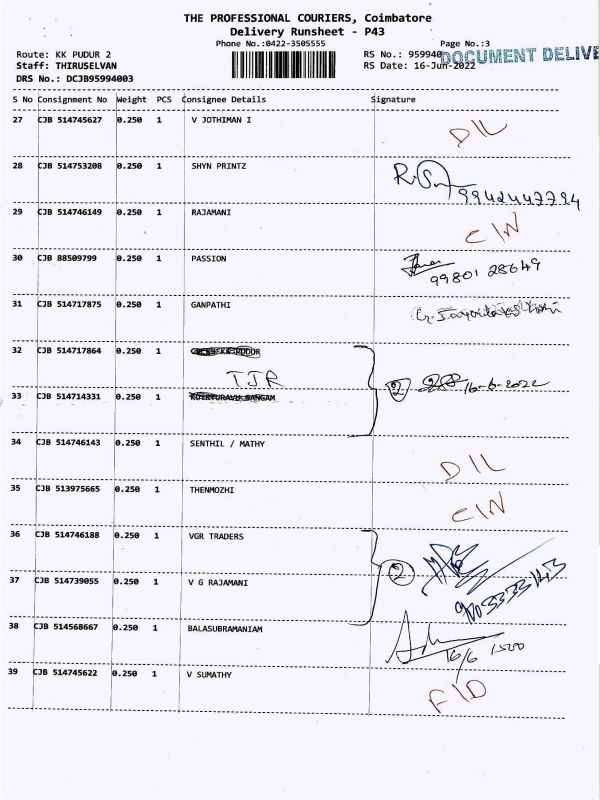 THE PROFESSIONAL COURIERS, Coimbatore
Delivery Runsheet - P43
Phone No.:0422-3505555
Page No.:3
Route: KK PUDUR 2
RS No.: 959940
DOCUMENT DELIVE
Staff: THIRUSELVAN
RS Date: 16-Jun-2022
DRS No.: DCJB95994003
S No Consignment No Weight PCS Consignee Details Signature
27 CJB 514745627 0.250 1 V JOTHIMAN I D/L
28 CJB 514753208 0.250 1 SHYN PRINTZ
29 CJB 514746149 0.250 1 RAJAMANI C/N
30 CJB 88509799 0.250 1 PASSION
99801 28649
31 CJB 514717875 0.250 1 GANPATHI
32 CJB 514717864 0.250 1
TJR
2 16-6-2022
33 CJB 514714331 0.250 1
34 CJB 514746143 0.250 1 SENTHIL / MATHY D/L
35 CJB 513975665 0.250 1 THENMOZHI C/N
36 CJB 514746188 0.250 1 VGR TRADERS
2
37 CJB 514739055 0.250 1 V G RAJAMANI
38 CJB 514568667 0.250 1 BALASUBRAMANIAM
16/6 1500
39 CJB 514745622 0.250 1 V SUMATHY F/D